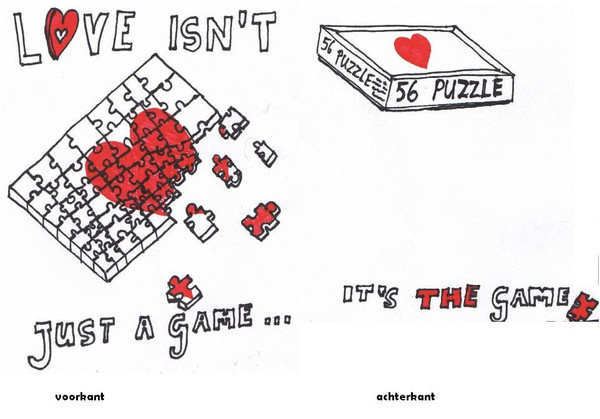 LOVE ISN'T
JUST A GAME ...
voorkant
56 PUZZLE
56 PUZZLE
IT'S THE GAME
achterkant